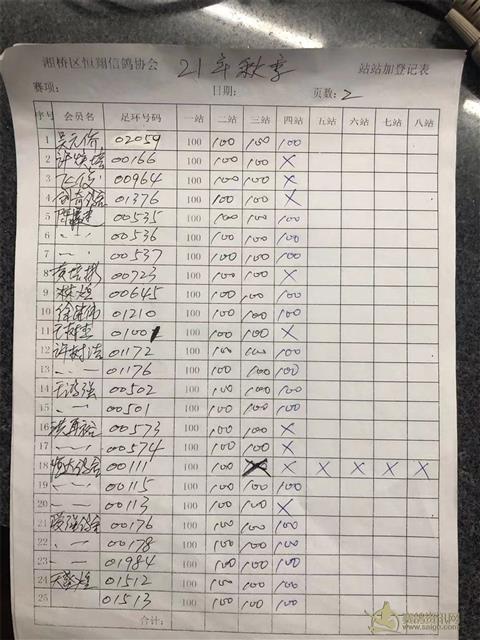 湘桥区恒翔信鸽协会 21年秋季 站站加登记表
赛项: 日期: 页数: 2
序号 会员名 足环号码 一站 二站 三站 四站 五站 六站 七站 八站
1 吴元侨 02059 100 100 100 100
2 00166 100 100 100 X
3 飞俊 00964 100 100 100 X
4 01376 100 100 100 X
5 00535 100 100 100 100
6 〃 00536 100 100 100 100
7 〃 00537 100 100 100 100
8 00723 100 100 100 X
9 林煌 00645 100 100 100 100
10 01210 100 100 100 100
11 王树杰 01001 100 100 100 X
12 许树浩 01172 100 100 100 100
13 〃 01176 100 100 100 100
14 00502 100 100 100 100
15 〃 00501 100 100 100 100
16 00573 100 100 100 X
17 〃 00574 100 100 100 X
18 00111 100 100 X X X X X X
19 〃 00115 100 100 100 100
20 〃 00113 100 100 100 X
21 00176 100 100 100 100
22 〃 00178 100 100 100 100
23 〃 01984 100 100 100 100
24 01512 100 100 100 100
25 01513 100 100 100 100
合计:
赛鸽资讯网
www.saige.com